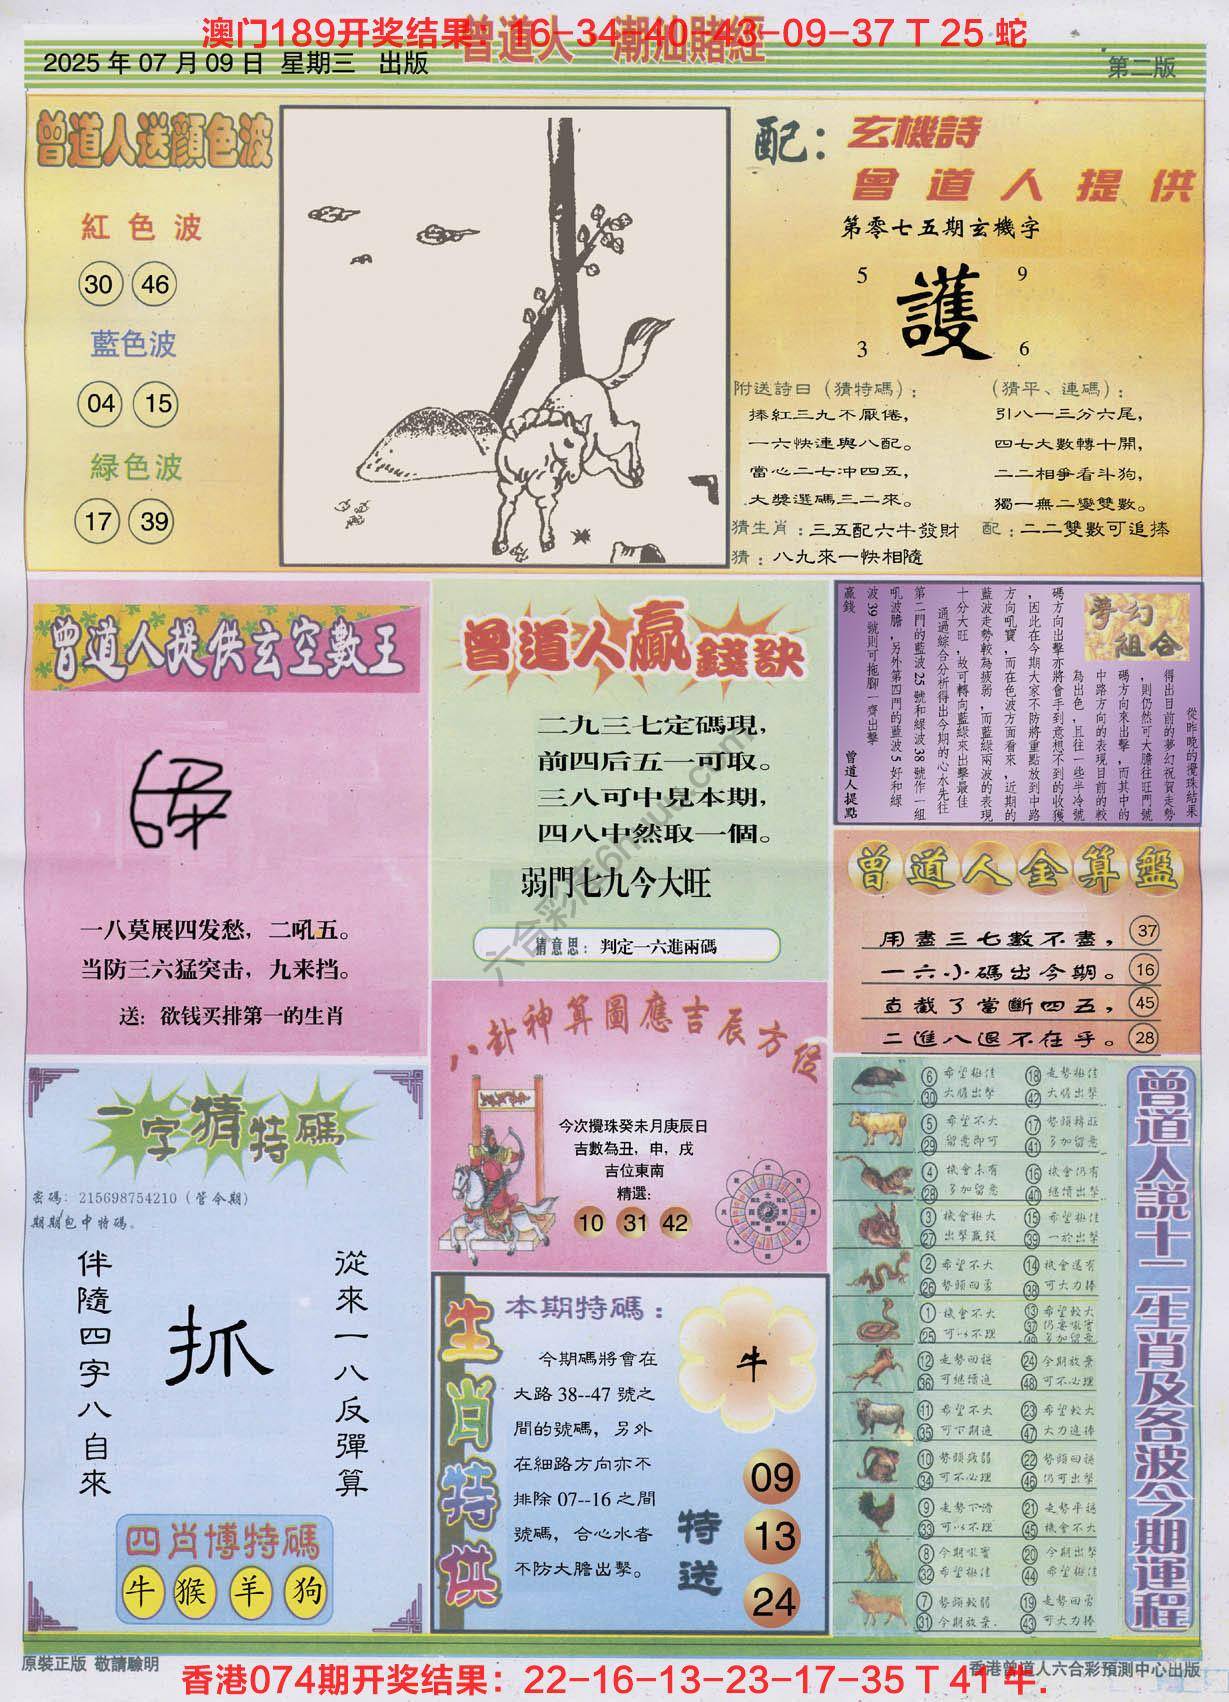 澳门189开奖结果：16-34-40-43-09-37 T 25 蛇
曾道人 潮汕賭經
2025 年 07 月 09 日 星期三 出版
第二版
曾道人送顏色波
紅色波
30 46
藍色波
04 15
緑色波
17 39
配：玄機詩
曾道人提供
第零七五期玄機字
5 9
護
3 6
附送詩曰（猜特碼）：
捧紅三九不厭倦，
一六快連與八配。
當心二七冲四五，
大獎選碼三二來。
（猜平、連碼）：
引八一三分六尾，
四七大數轉十開，
二二相爭看斗狗，
獨一無二變雙數。
猜生肖：三五配六牛發財
配：二二雙數可追捧
猜：八九來一快相隨
曾道人提供玄空數王
一八莫展四发愁，二吼五。
当防三六猛突击，九来挡。
送：欲钱买排第一的生肖
曾道人贏錢訣
二九三七定碼現，
前四后五一可取。
三八可中見本期，
四八中然取一個。
弱門七九今大旺
猜意思：判定一六進兩碼
夢幻組合
從昨晚的攪珠結果
得出目前的夢幻祝賀走勢
，則仍然可大膽往旺門號
碼方向來出擊，而其中的
中路方向的表現目前的較
為出色，且往一些半冷號
碼方向出擊亦將會手到意想不到的收獲
，因此在今期大家不防將重點放到中路
方向吼寶，而在色波方面看來，近期的
藍波走勢較為疲弱，而藍綠兩波的表現
十分大旺，故可轉向藍綠來出擊最佳
通過綜合分析得出今期的心水先往
第二門的藍波25號和綠波38號作一組
吼波膽，另外第四門的藍波5好和綠
波39號則可拖腳一齊出擊
贏錢
曾道人提點
曾道人金算盤
用盡三七數不盡，37
一六小碼出今期。16
直截了當斷四五，45
二進八退不在乎。28
八卦神算圖應吉辰方位
今次攪珠癸未月庚辰日
吉數為丑，申，戌
吉位東南
精選：
10 31 42
一字猜特碼
密碼：215698754210（管今期）
期期包中特碼。
從來一八反彈算
抓
伴隨四字八自來
四肖博特碼
牛 猴 羊 狗
生肖特供
本期特碼：
今期碼將會在
大路 38--47 號之
間的號碼，另外
在細路方向亦不
排除 07--16 之間
號碼，合心水者
不防大膽出擊。
牛
特送
09
13
24
曾道人説十二生肖及各波今期運程
6 希望極佳 18 走勢極佳
30 大膽出擊 42 大膽出擊
5 希望不大 17 勢頭轉旺
29 留意即可 41 多加留意
4 機會未有 16 機會仍有
28 多加留意 40 繼續出擊
3 機會極大 15 希望極佳
27 出擊贏錢 39 一於出擊
2 希望不大 14 機會還有
26 勢頭回勇 38 可大力捧
1 機會不大 13 希望較大
25 可以不理 37
49 多加留意
12 走勢回穩 24 今期放棄
36 可繼續追 48 可不必理
11 希望不大 23 希望較大
35 可下期追 47 大力追捧
10 勢頭疲弱 22 勢頭回穩
34 可不必理 46 仍可出擊
9 走勢下滑 21 走勢平穩
33 可以不理 45 機會不大
8 今期吼實 20 今期出擊
32 希望極佳 44 希望極佳
7 勢頭較弱 19 走勢回勇
31 今期放棄 43 可大力捧
原裝正版 敬請驗明
香港曾道人六合彩預測中心出版
香港074期开奖结果：22-16-13-23-17-35 T 41 牛.